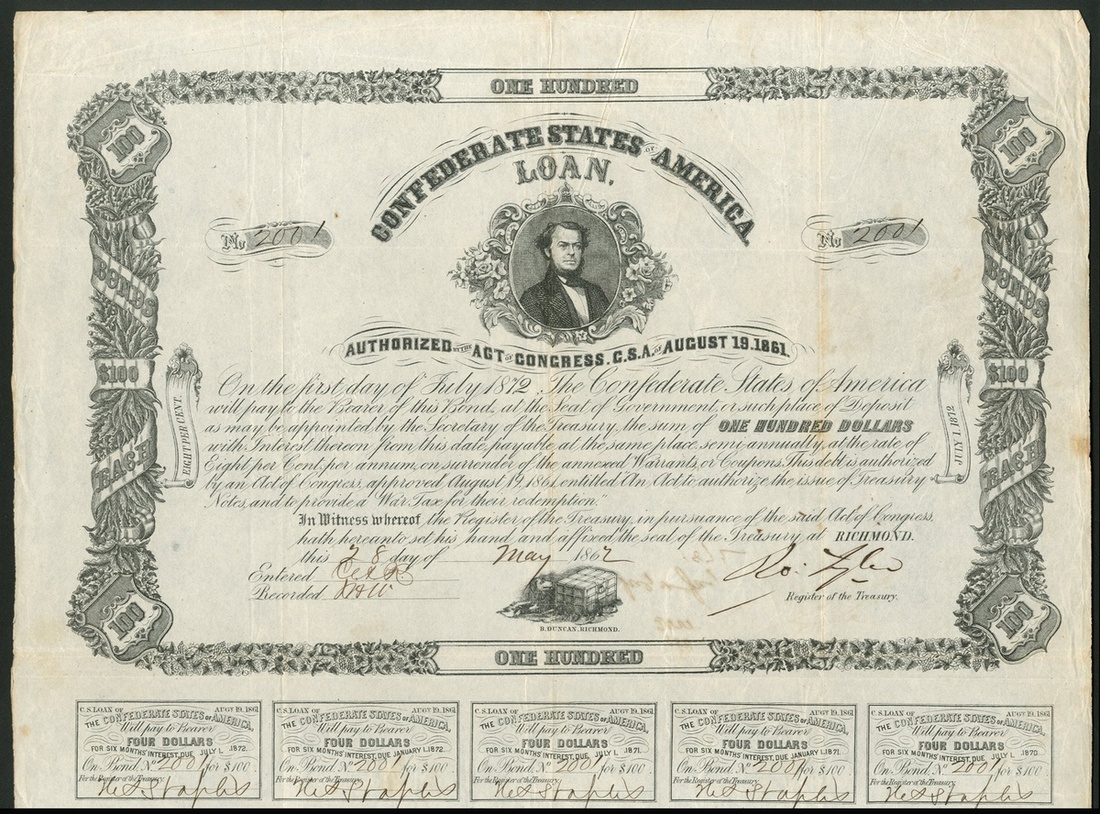 ONE HUNDRED
CONFEDERATE STATES OF AMERICA
LOAN,
100
100
No 2001
No 2001
AUTHORIZED BY THE ACT OF CONGRESS. C.S.A. OF AUGUST 19.1861.
BONDS
BONDS
$100
$100
EACH
EACH
EIGHT PER CENT.
JULY 1 1872
On the first day of July 1872, The Confederate States of America
will pay to the Bearer of this Bond, at the Seat of Government, or such place of Deposit
as may be appointed by the Secretary of the Treasury, the sum of ONE HUNDRED DOLLARS
with Interest thereon from this date, payable at the same place, semi-annually, at the rate of
Eight per Cent. per annum, on surrender of the annexed Warrants, or Coupons. This debt is authorized
by an Act of Congress, approved August 19, 1861, entitled An Act to authorize the issue of Treasury
Notes, and to provide a War Tax for their redemption."
In Witness whereof the Register of the Treasury, in pursuance of the said Act of Congress,
hath hereunto set his hand and affixed the seal of the Treasury at RICHMOND.
this 28 day of May 1862
Entered
Recorded
Ro: Tyler
Register of the Treasury.
B. DUNCAN, RICHMOND.
100
100
ONE HUNDRED
C.S. LOAN OF AUGT 19, 1861
THE CONFEDERATE STATES OF AMERICA,
Will pay to Bearer
FOUR DOLLARS
FOR SIX MONTHS INTEREST, DUE JULY 1, 1872.
On Bond, No 2001 for $100
For the Register of the Treasury.
C.S. LOAN OF AUGT 19, 1861
THE CONFEDERATE STATES OF AMERICA,
Will pay to Bearer
FOUR DOLLARS
FOR SIX MONTHS INTEREST, DUE JANUARY 1, 1872.
On Bond, No 2001 for $100
For the Register of the Treasury.
C.S. LOAN OF AUGT 19, 1861
THE CONFEDERATE STATES OF AMERICA,
Will pay to Bearer
FOUR DOLLARS
FOR SIX MONTHS INTEREST, DUE JULY 1, 1871.
On Bond, No 2001 for $100
For the Register of the Treasury.
C.S. LOAN OF AUGT 19, 1861
THE CONFEDERATE STATES OF AMERICA,
Will pay to Bearer
FOUR DOLLARS
FOR SIX MONTHS INTEREST, DUE JANUARY 1, 1871.
On Bond, No 2001 for $100
For the Register of the Treasury.
C.S. LOAN OF AUGT 19, 1861
THE CONFEDERATE STATES OF AMERICA,
Will pay to Bearer
FOUR DOLLARS
FOR SIX MONTHS INTEREST, DUE JULY 1, 1870.
On Bond, No 2001 for $100
For the Register of the Treasury.